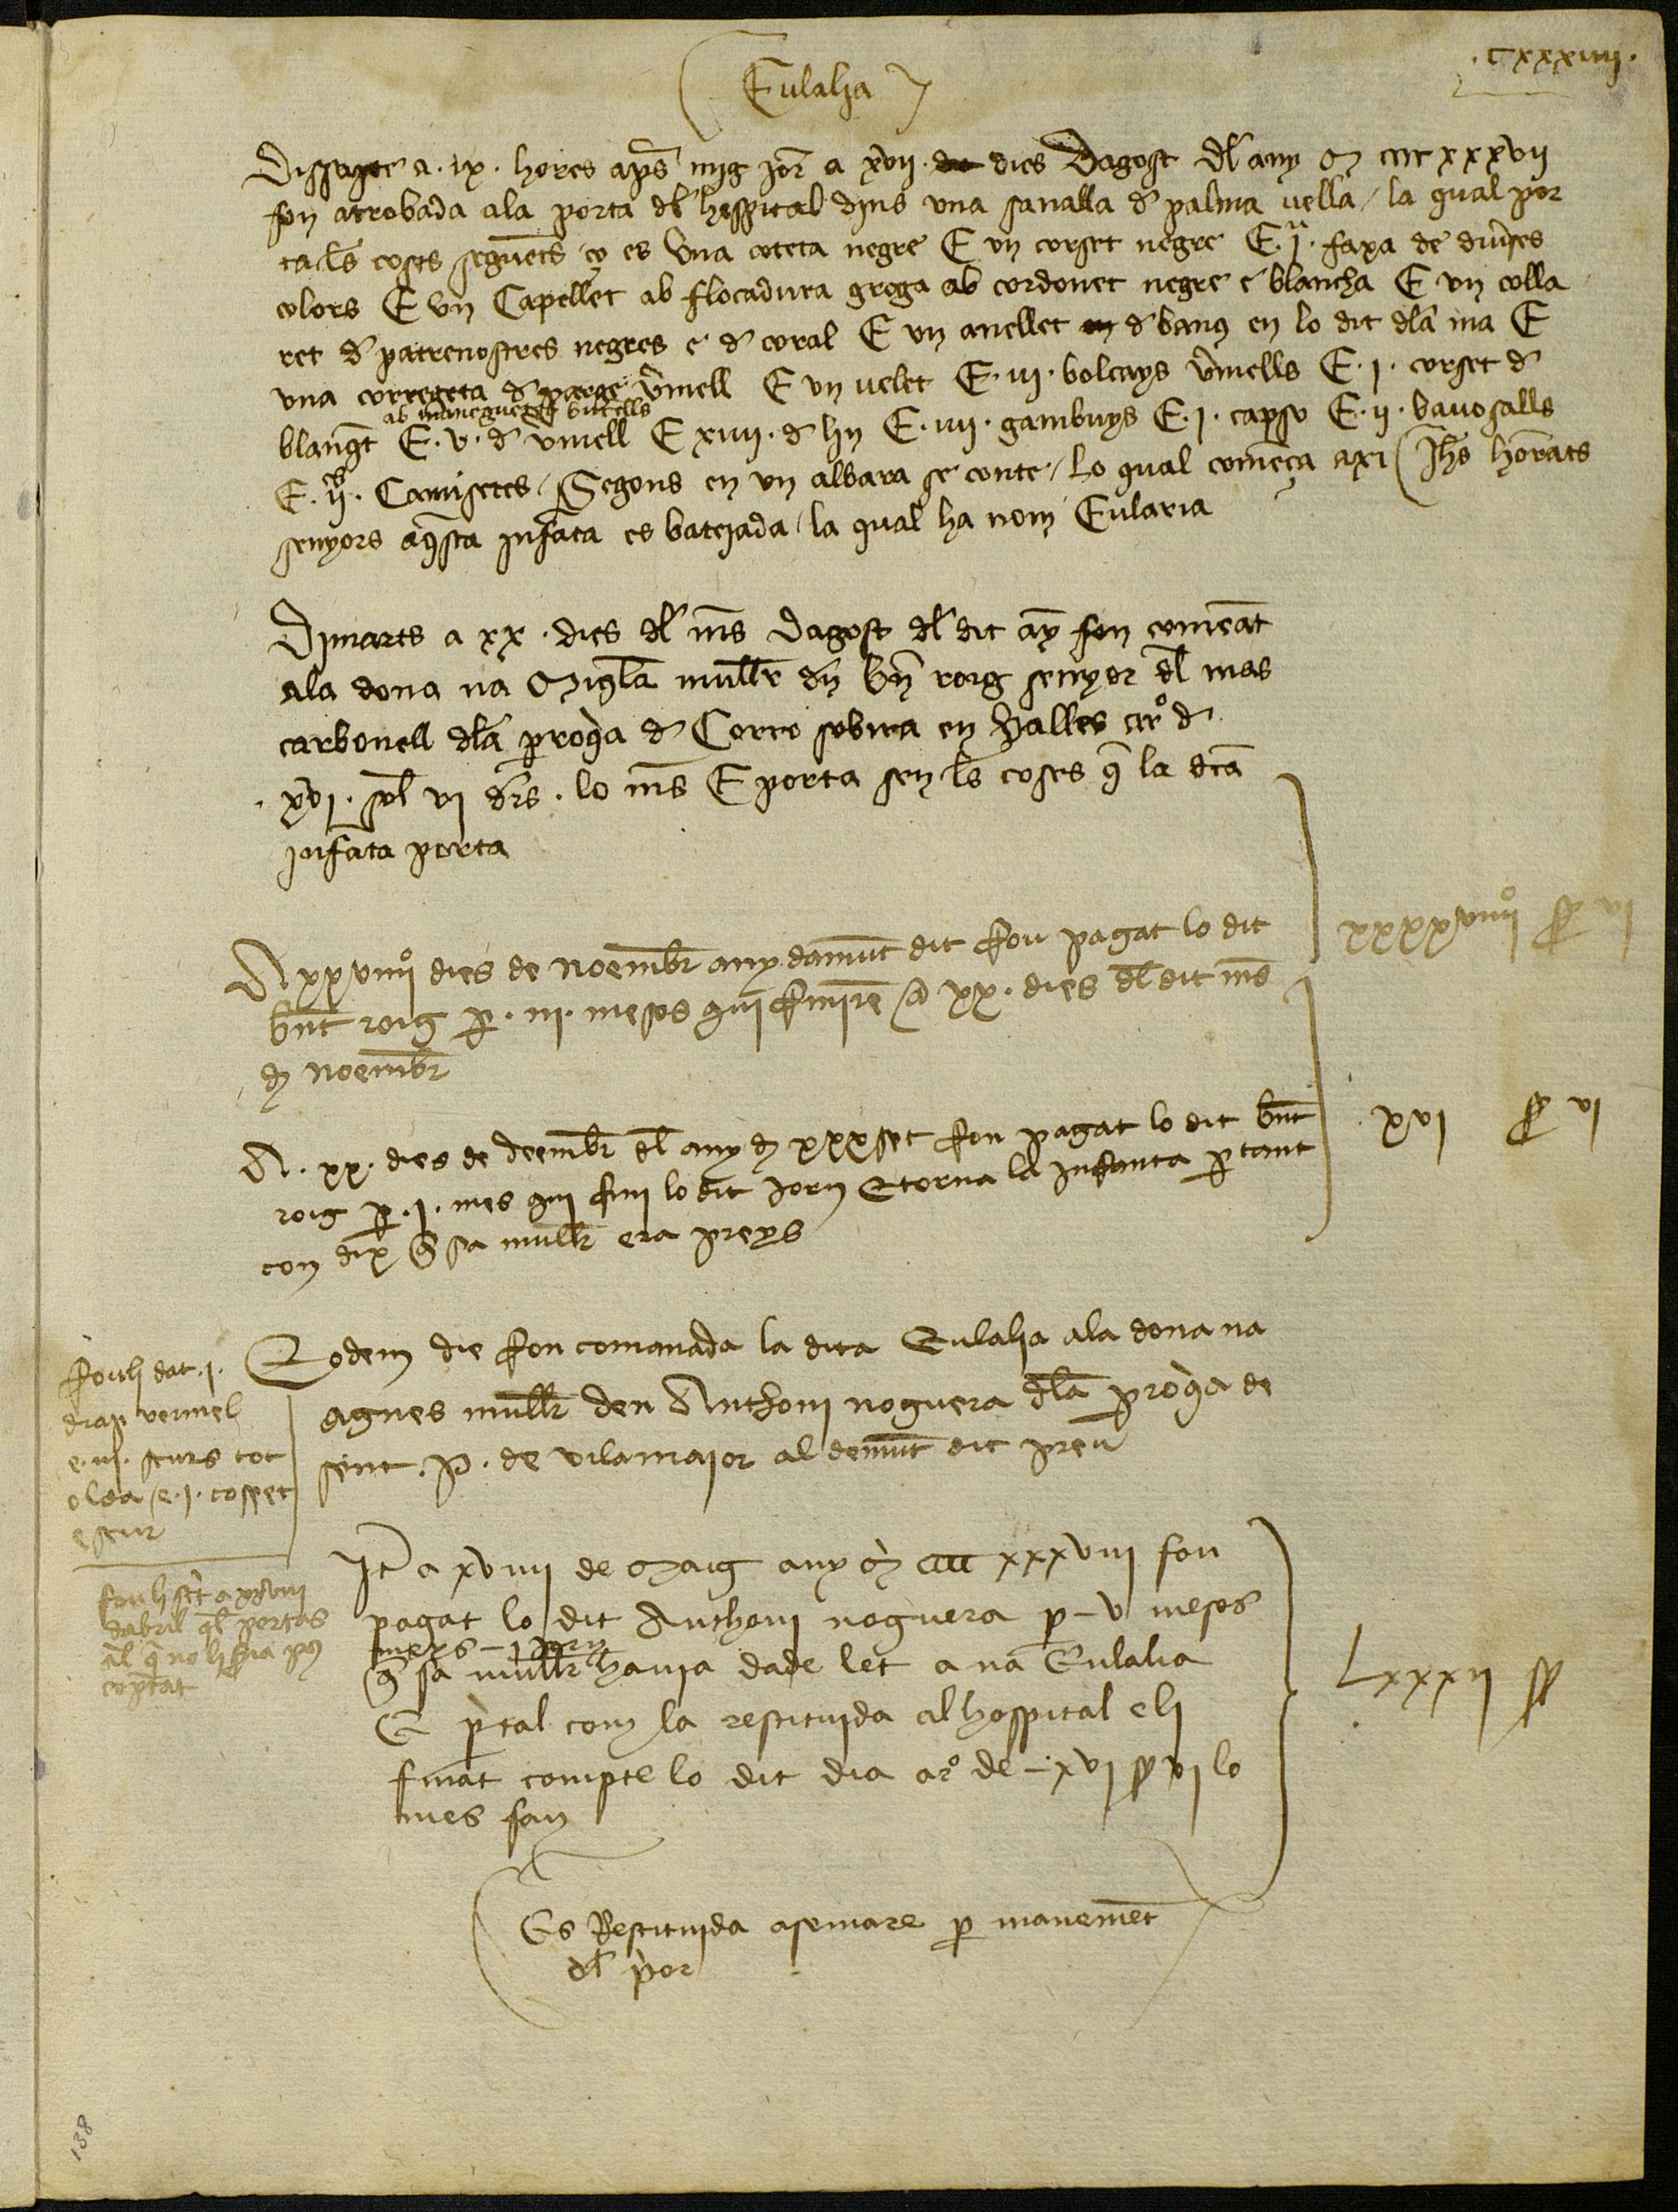 .cxxxiiii.
Eulalia
Dissapte a .ix. hores aps mig jor a xvii. dies Dagost dl any M cccc xxxvii
fon atrobada ala porta dl hespital dins una sanalla d palma vella / la qual por
ta les coses seguents ço es Una coteta negre E un corset negre E .i. faxa de diverses
colors E un Capellet ab flocadura groga ab cordonet negre e blancha E un colla
ret d patrenostres negres e d coral E un anellet d banç en lo dit dla ma E
una corregeta d parge vmell E un velet E .vi. bolcays vmells E .i. corset d
ab maneguetes burells
blanqt E .v. d vmell E xiiii. d li E .iiii. gambuys E .i. capso E .ii. bavosalls
E .ii. Camisetes / Segons en un albara se conte / Lo qual comença axi (Jhs honrats
senyors aqsta infata es batejada / la qual ha nom Eularia
Dimarts a xx. dies dl ms Dagost dl dit ay fon comeat
ala dona na Migla mullr dn bn roig senyor dl mas
carbonell dla proqa d Corro sobira en Valles arº d
.xvi. sol vi drs. lo ms E porta sen ls coses q la dta
infata porta
A xxviiiiº dies de noembr any damut dit fon pagat lo dit
bnt roig p .iii. mesos qui finire a xx. dies dl dit ms
d noembr
xxxxviiiiº ss vi
A .xx. dies de deembr dl any d xxxset fon pagat lo dit bnt
roig p .i. mes qui fini lo dit jorn E torna la infanta p tant
con dix q sa mullr era preys
xvi ss vi
Eodem die fon comanada la dita Eulalia ala dona na
agnes mullr den Anthoni noguera dla proqa de
sent .P. de vilamaior al demut dit preu
fonli dat .i.
drap vermel
e .iii. scurs tot
olda / e .i. cosset
escur
fonli sct a xxviii
dabril ql portas
Jt a xviiii de Maig any M cccc xxxviii fon
pagat lo dit Anthoni noguera p – v mesos
meys – i jorn
q sa mullr havia dade let a na Eulalia
E p tal com la restituida al hospital e li
finat compte lo dit dia arº de – xvi ss vi lo
mes fan
Lxxxii ss
Es Restituida asemare p manement
dl prior
138